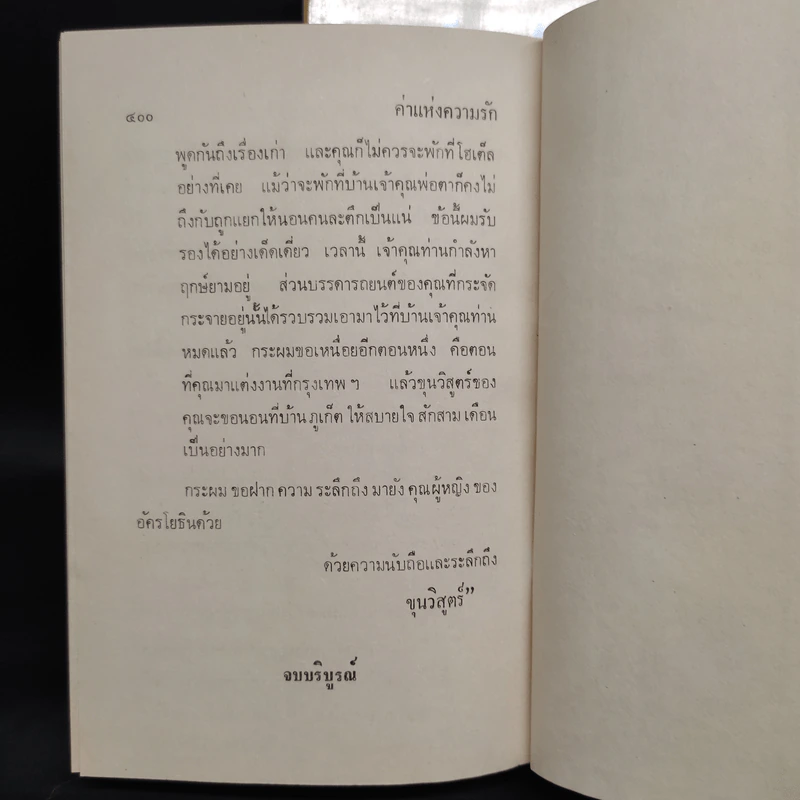 ๔๐๐ ค่าแห่งความรัก
พูดกันถึงเรื่องเก่า และคุณก็ไม่ควรจะพักที่โฮเต็ล
อย่างที่เคย แม้ว่าจะพักที่บ้านเจ้าคุณพ่อตาก็คงไม่
ถึงกับถูกแยกให้นอนคนละตึกเป็นแน่ ข้อนี้ผมรับ
รองได้อย่างเด็ดเดี่ยว เวลานี้ เจ้าคุณท่านกำลังหา
ฤกษ์ยามอยู่ ส่วนบรรดารถยนต์ของคุณที่กระจัด
กระจายอยู่นั้นได้รวบรวมเอามาไว้ที่บ้านเจ้าคุณท่าน
หมดแล้ว กระผมขอเหนื่อยอีกตอนหนึ่ง คือตอน
ที่คุณมาแต่งงานที่กรุงเทพ ฯ แล้วขุนวิสูตร์ของ
คุณจะขอนอนที่บ้าน ภูเก็ต ให้สบายใจ สักสาม เดือน
เป็นอย่างมาก
กระผม ขอฝาก ความ ระลึกถึง มายัง คุณผู้หญิง ของ
อัครโยธินด้วย
ด้วยความนับถือและระลึกถึง
ขุนวิสูตร์”
จบบริบูรณ์